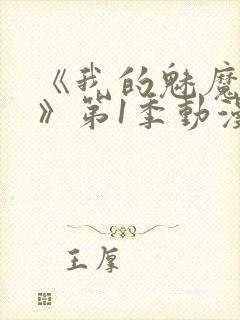 《我的魅魔
》第1季動漫
王厚